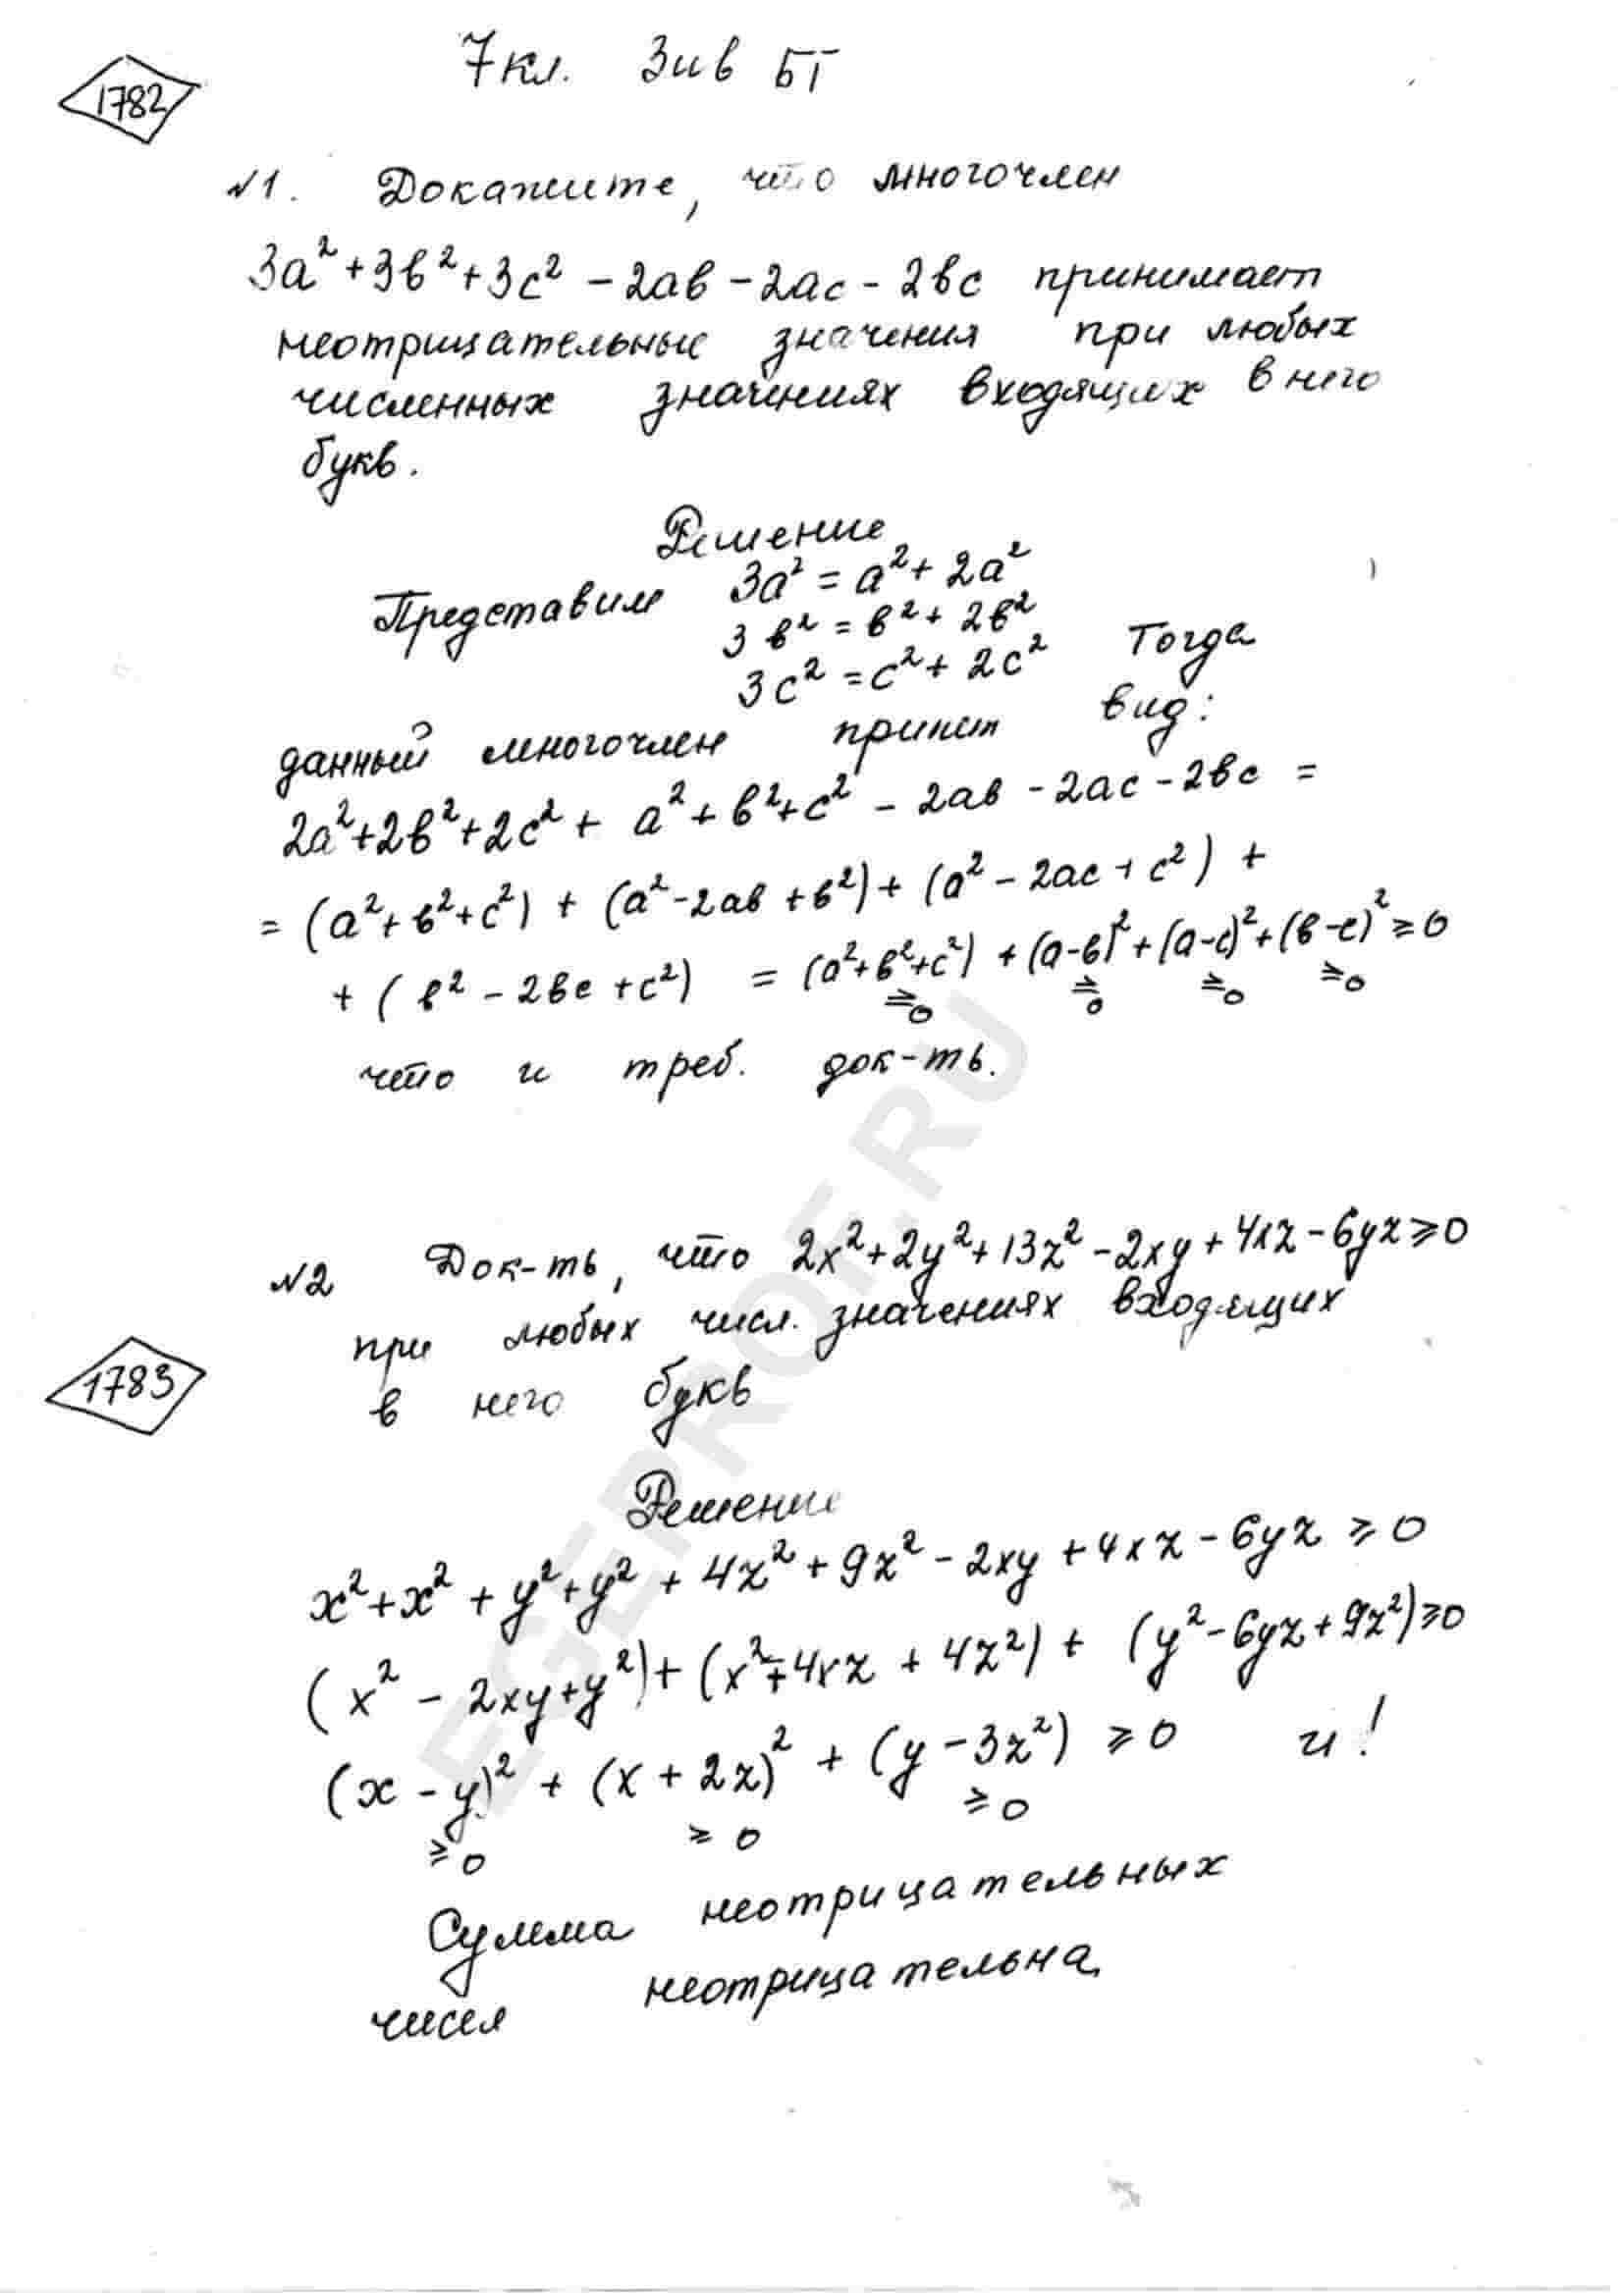 7 кл. Зив БГ
1782
№1. Докажите, что многочлен
3a² + 3b² + 3c² - 2ab - 2ac - 2bc принимает
неотрицательные значения при любых
численных значениях входящих в него
букв.
Решение
Представим 3a² = a² + 2a²
3b² = b² + 2b²
3c² = c² + 2c² Тогда
данный многочлен примет вид:
2a² + 2b² + 2c² + a² + b² + c² - 2ab - 2ac - 2bc =
= (a² + b² + c²) + (a² - 2ab + b²) + (a² - 2ac + c²) +
+ (b² - 2bc + c²) = (a² + b² + c²) + (a-b)² + (a-c)² + (b-c)² ≥ 0
≥0 ≥0 ≥0 ≥0
что и треб. док-ть.
№2 Док-ть, что 2x² + 2y² + 13z² - 2xy + 4xz - 6yz ≥ 0
при любых числ. значениях входящих
1783
в него букв
Решение
x² + x² + y² + y² + 4z² + 9z² - 2xy + 4xz - 6yz ≥ 0
(x² - 2xy + y²) + (x² + 4xz + 4z²) + (y² - 6yz + 9z²) ≥ 0
(x - y)² + (x + 2z)² + (y - 3z²) ≥ 0 и!
≥0 ≥0 ≥0
Сумма неотрицательных
чисел неотрицательна
EGEPROF.RU